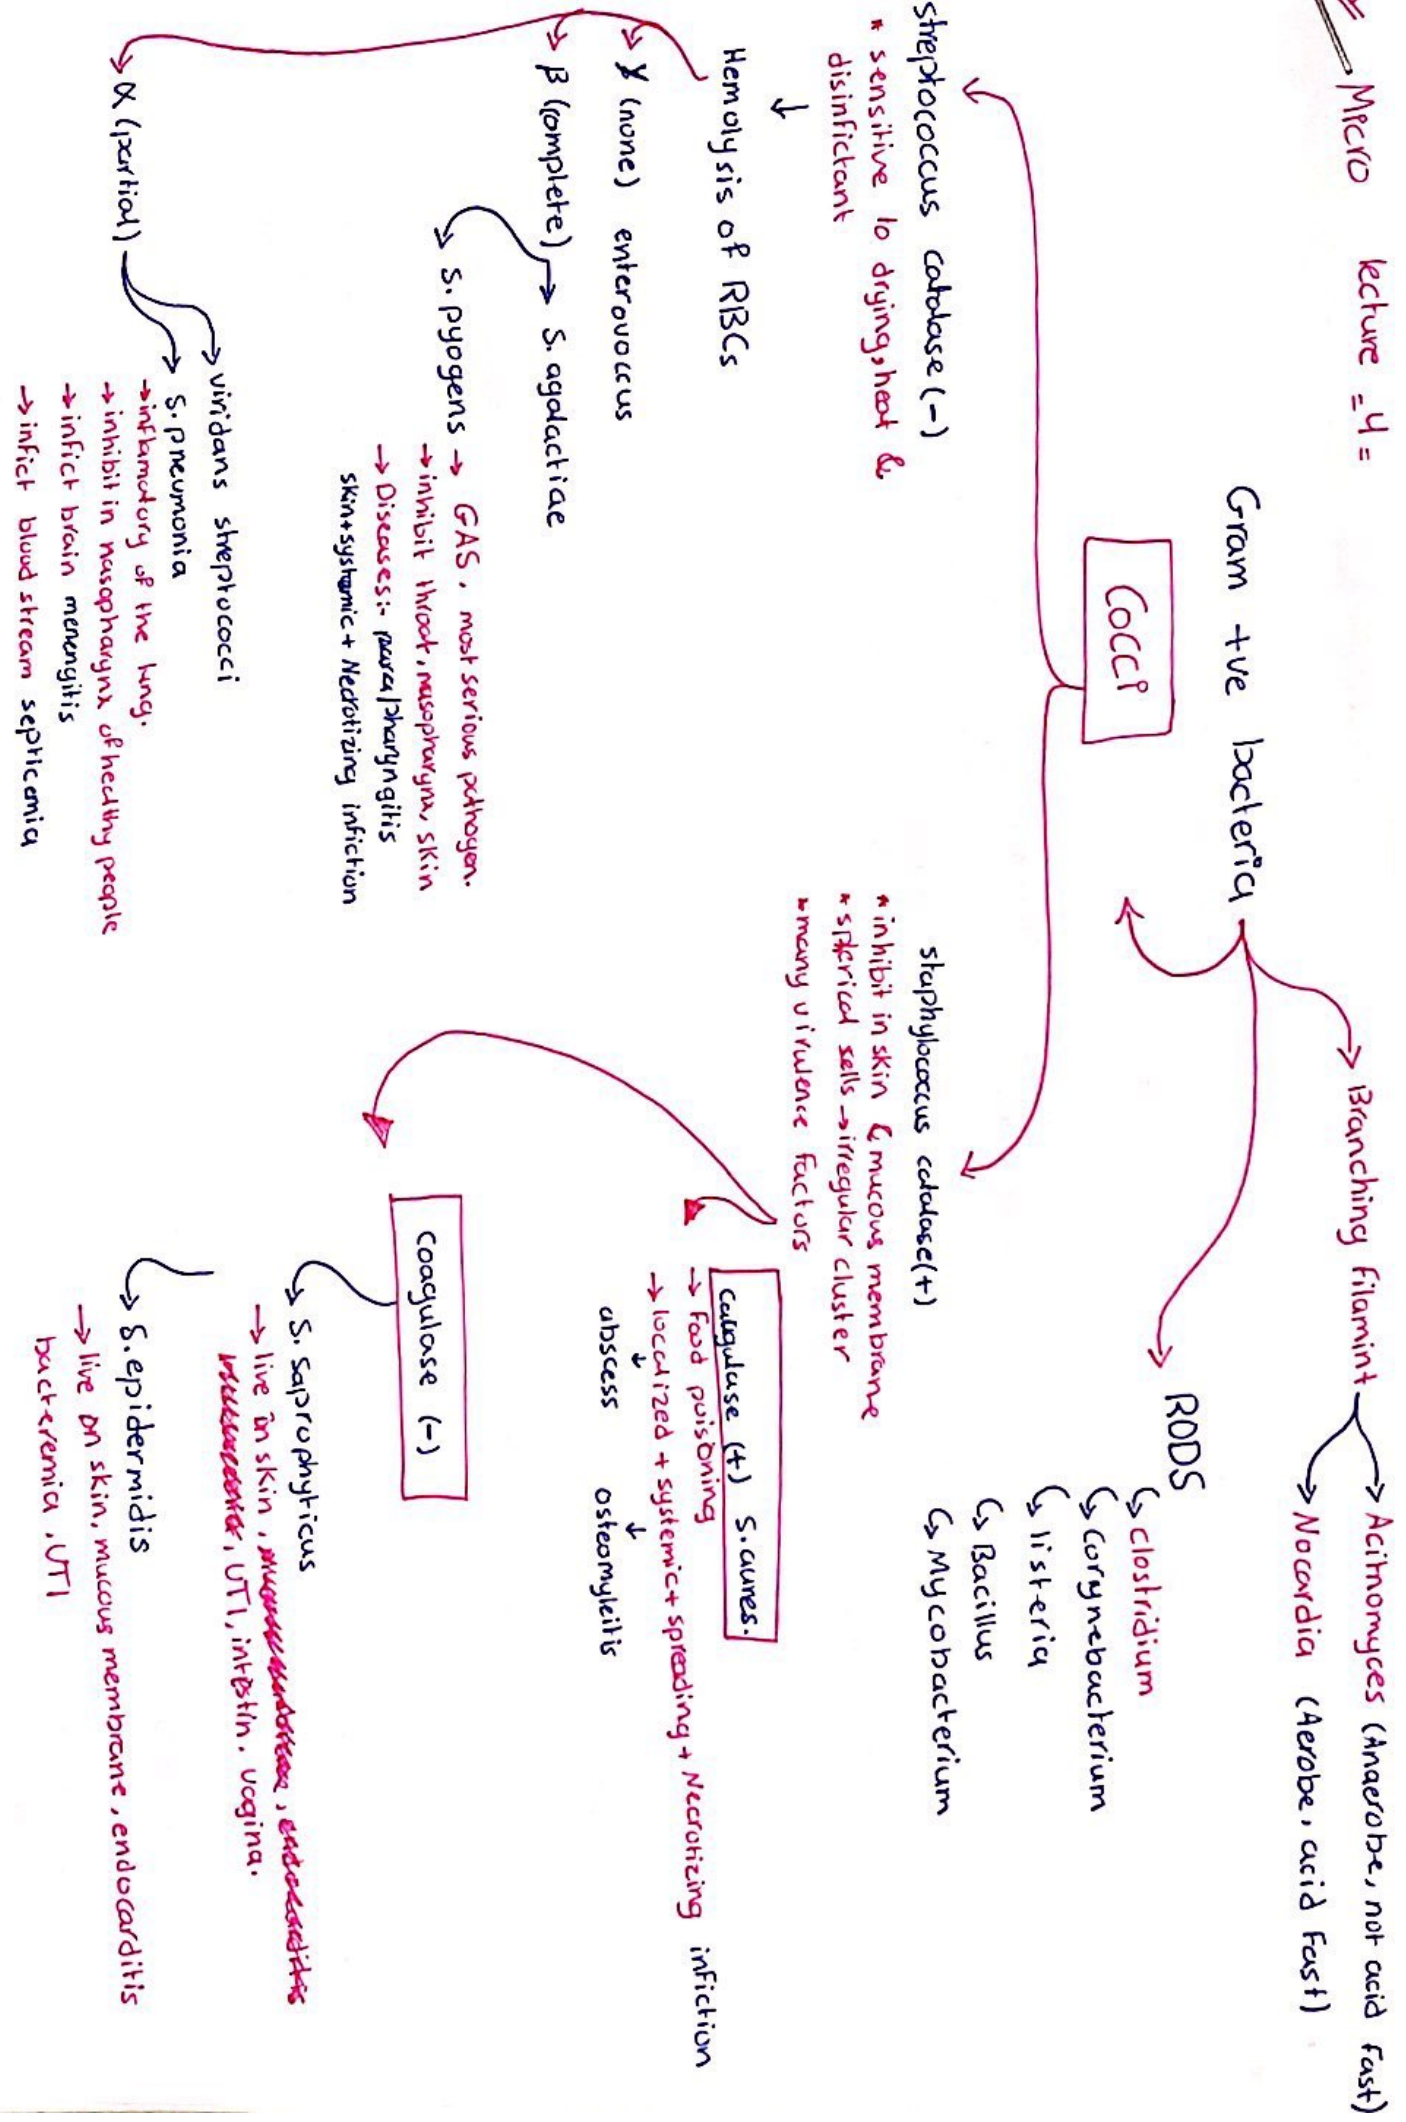 Micro lecture = 4 =
Gram +ve bacteria
Branching filamint
Acitnomyces (Anaerobe, not acid fast)
Nocardia (Aerobe, acid Fast)
RODS
clostridium
Corynebacterium
listeria
Bacillus
Mycobacterium
Cocci
streptococcus catalase (-)
* sensitive to drying, heat &
disinfictant
↓
Hemolysis of RBCs
γ (none) enterovoccus
β (complete) → S. agalactiae
S. pyogens → GAS, most serious pathogen.
→ inhibit throat, nasopharynx, skin
→ Diseases:- para/pharyngitis
skin+systemic+ Necrotizing infiction
α (partial)
viridans streptococci
S. pneumonia
→ inflamatory of the lung.
→ inhibit in nasopharynx of healthy people
→ infict brain menengitis
→ infict blood stream septicemia
staphylococcus catalase (+)
* inhibit in skin & mucous membrane
* spherical sells → irregular cluster
* many virulence factors
Coagulase (+) S. aures.
→ Food poisoning
→ localized + systemic + spreading + Necrotizing infiction
↓ ↓
abscess osteomyleitis
Coagulase (-)
S. Saprophyticus
→ live in skin,
, UTI, intestin. vagina.
S. epidermidis
→ live on skin, mucous membrane, endocarditis
bacteremia, UTI